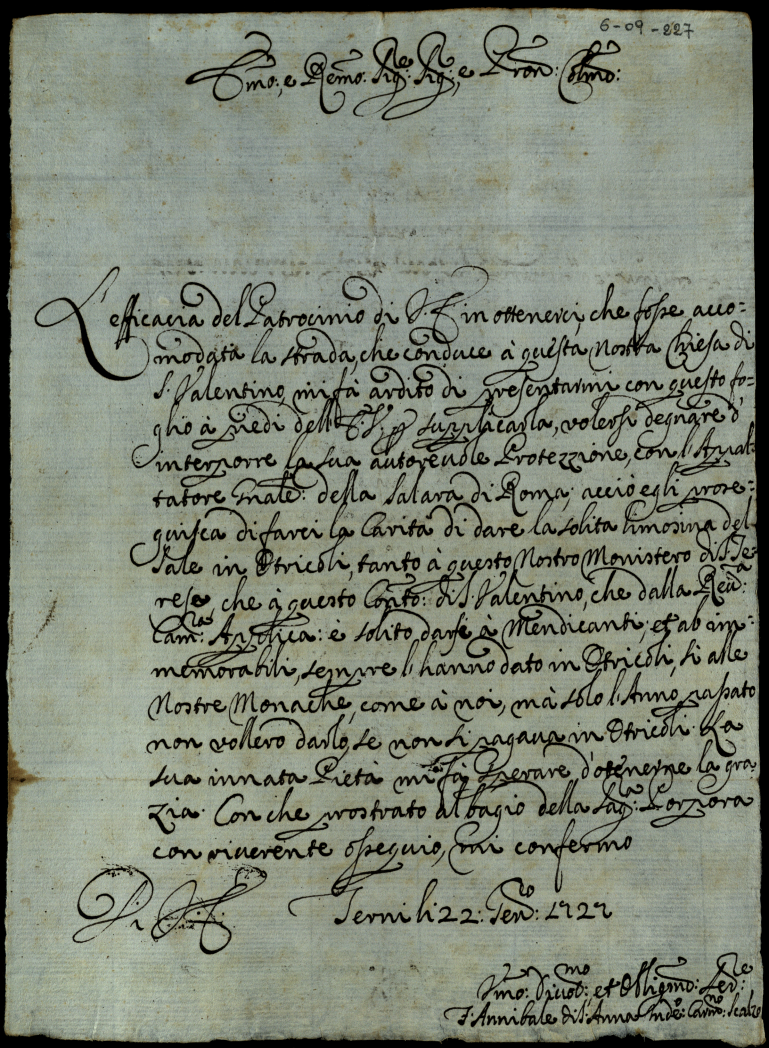 6-09-227
Emo:, e Remo: Sig:re Sig:, e Pron: Colmo:
L'efficacia del Patrocinio di V.E. in ottenerci, che fosse acco=
modata la strada, che conduce à questa Nostra Chiesa di
S. Valentino, mi fà ardito di presentarmi con questo fo=
glio à piedi dell' E.V. p supplicarla, volersi degnare d'
interporre la sua autorevole Protezzione, con l'Appal=
tatore Gnale: della Salara di Roma; acciò egli prose=
guisca di farci la Carità di dare la solita limosina del
Sale in Otricoli, tanto à questo Nostro Monistero di S. Te=
resa, che à questo Conto: di S. Valentino, che dalla Reu:a
Cam:ra Applica: è solito darsi à Mendicanti, et ab im=
memorabili, sempre l'hanno dato in Otricoli, si alle
Nostre Monache, come à noi, mà solo l'Anno passato
non vollero darlo, se non si pagava in Otricoli. La
sua innata Pietà mi fà sperare d'otenerne la gra=
zia. Con che prostrato al bagio della Sag:a Porpora
con riverente ossequio, mi confermo
Di V.E.
Terni li 22: Gen:o 1727
Vmo: Divot:mo et Obligmo: Ser:re
F. Annibale di S. Anna Carm:no Scalzo